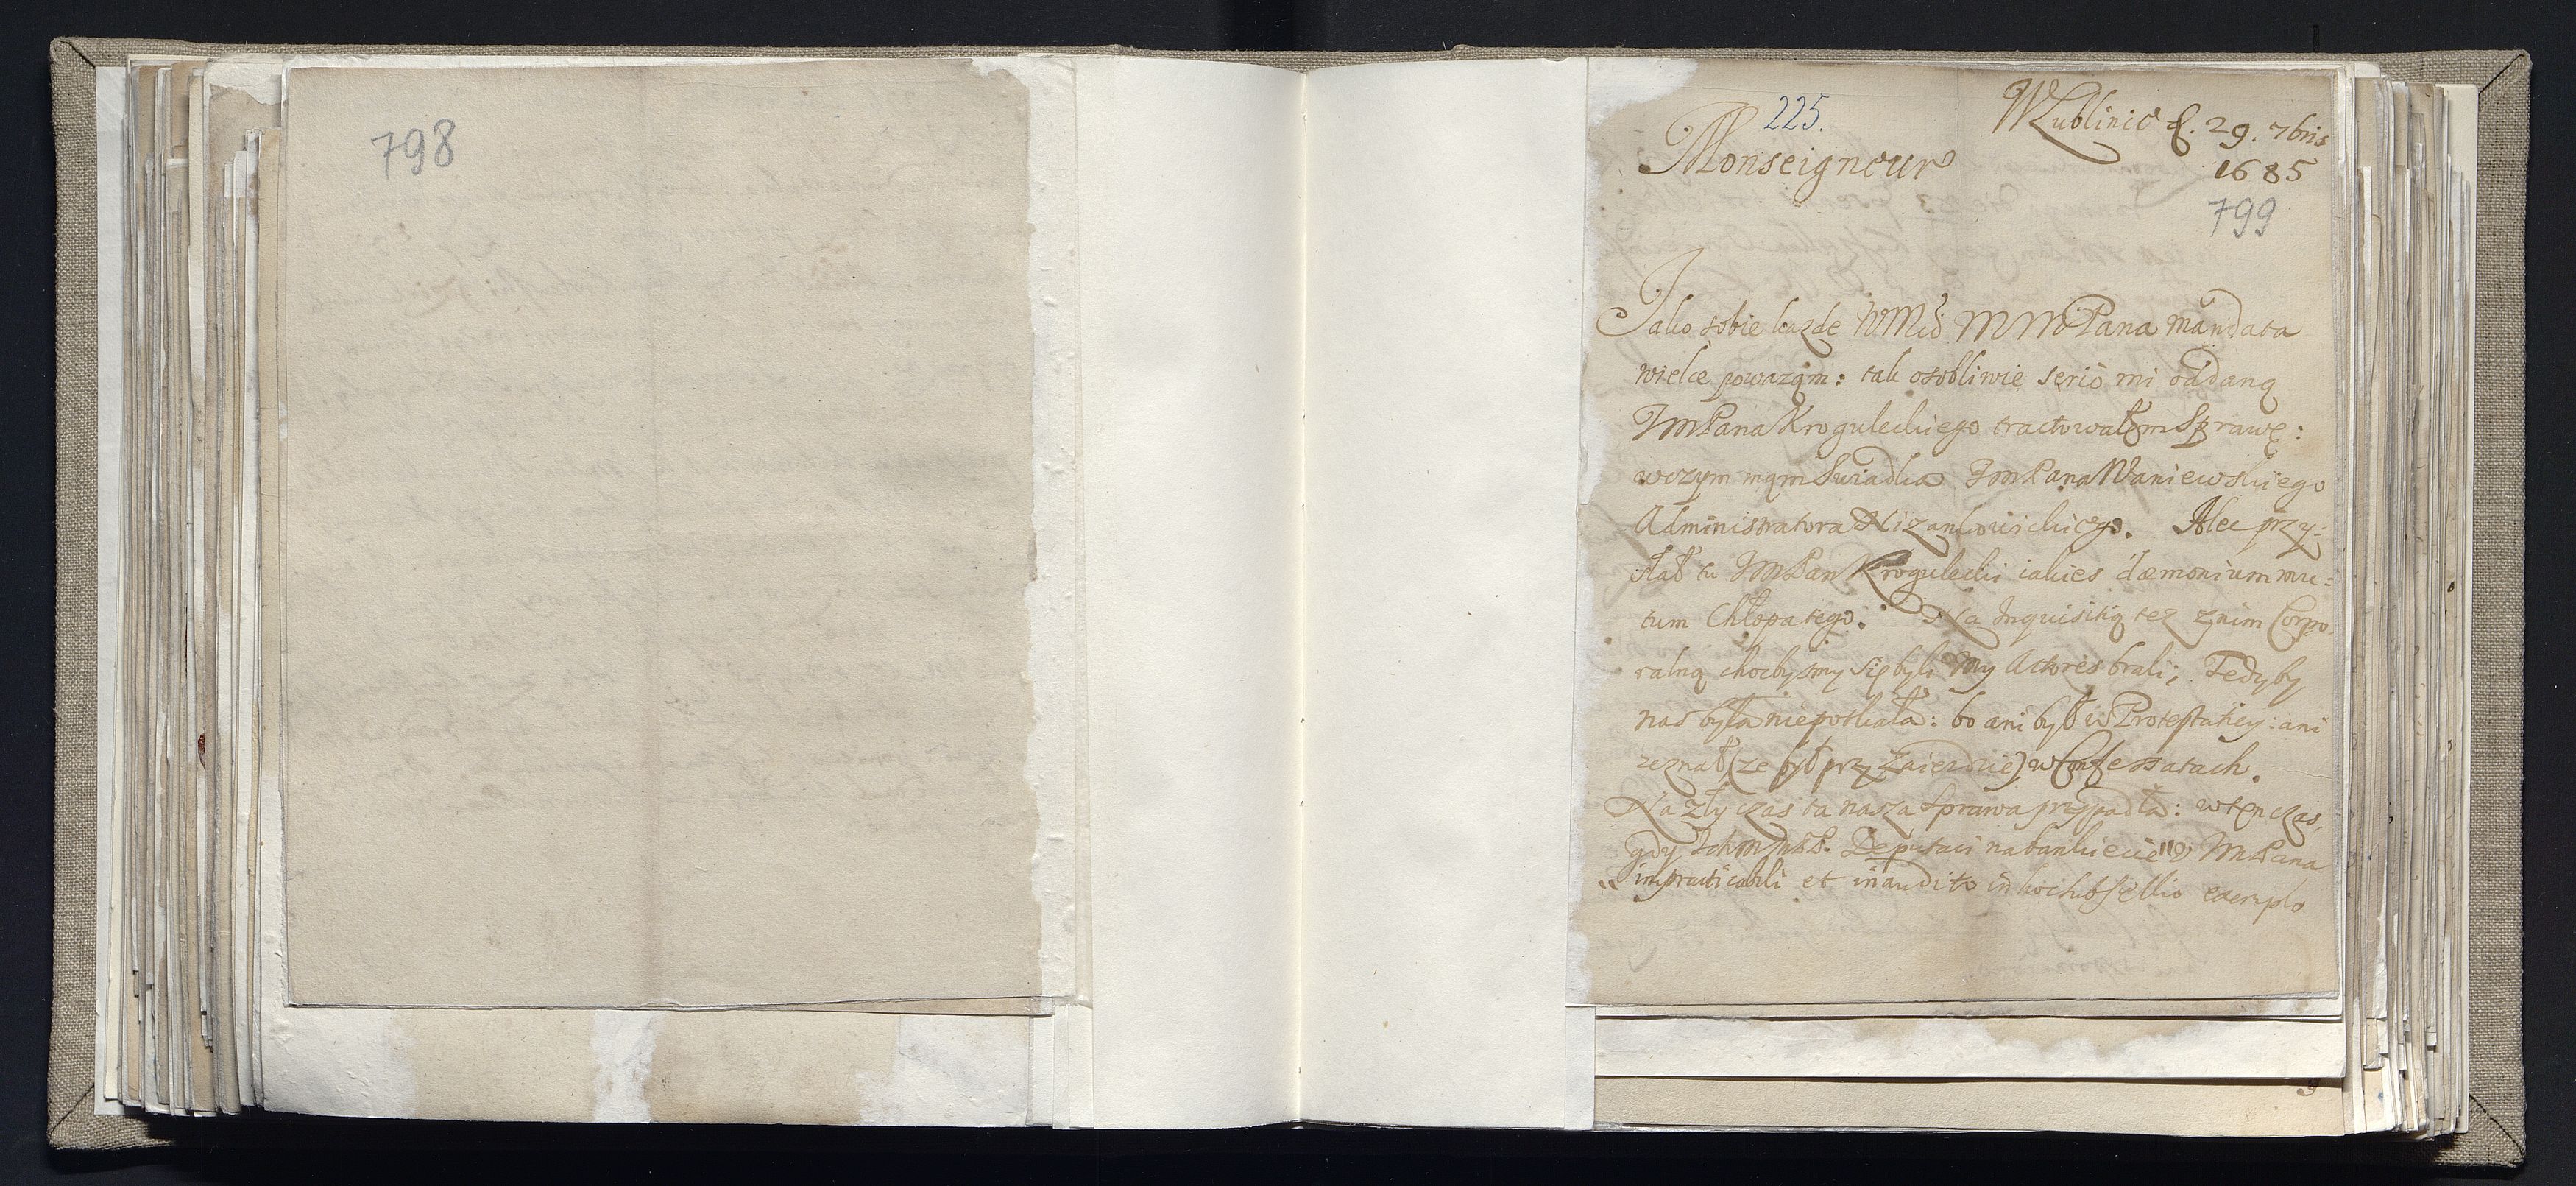 798
225.
WLublinie d. 29. 7bris
1685
Monseigneur
799
Jako sobie kazde WMci MMPana mandata
wielce powaząm: tak osobliwie serio mi oddaną
JmPana Kroguleckiego tractowałęm Sprawę:
wczym mąm Swiadka JmPana Waniewskiego
Administratora Nizankowickiego. Alec przy:
słał tu JmPan Krogulecki iakies dæmonium mu=
tum Chłopa tego. Na Inquisitią tez znim Corpo
ralną chocbysmy się byli My Actores brali; Tedyby
nas była niepotkała: bo ani był w Protestatiey: ani
zeznał (ze był przy Zaiezdzie) w Confessatach.
Na zły czas ta nasza Sprawa przypadła: wtęn czas,
gdy Ichm Deputaci nabankiecie JmPana
impracticabili et inaudito in hoc subsellio exemplo